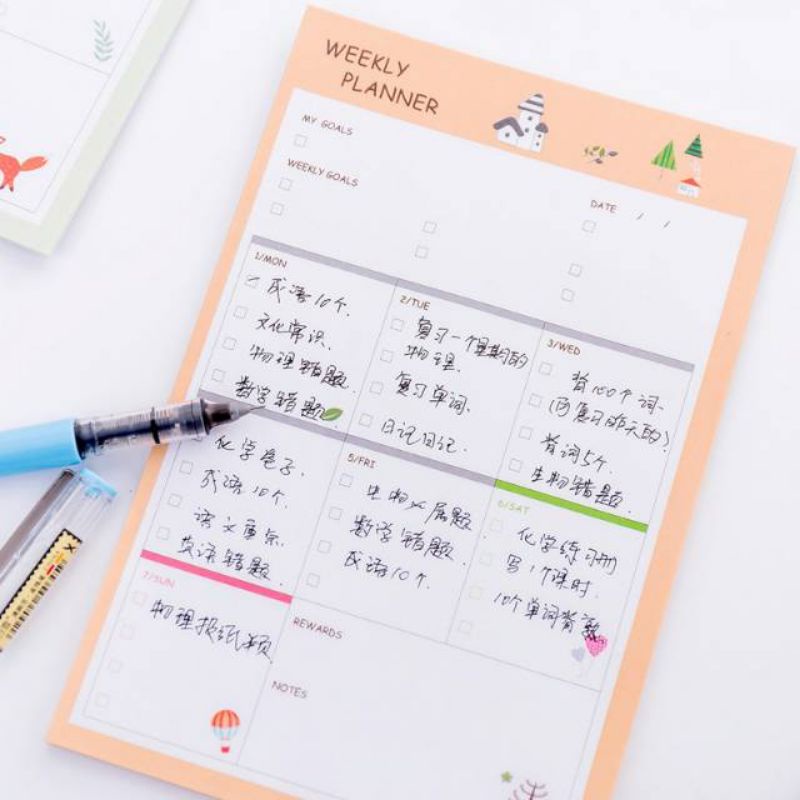 WEEKLY
PLANNER
MY GOALS
WEEKLY GOALS
DATE / /
1/MON
成语10个.
文化常识.
物理错题.
数学错题
2/TUE
复习一个星期的
物理.
复习单词.
日记日记.
3/WED
背100个词.
(再复习昨天的)
背词5个.
生物错题.
化学
成语10个.
语文
英语错题.
5/FRI
生物
数学错题.
成语10个.
6/SAT
化学练习册
写1个课时.
10个单词背
7/SUN
物理报纸
REWARDS
NOTES